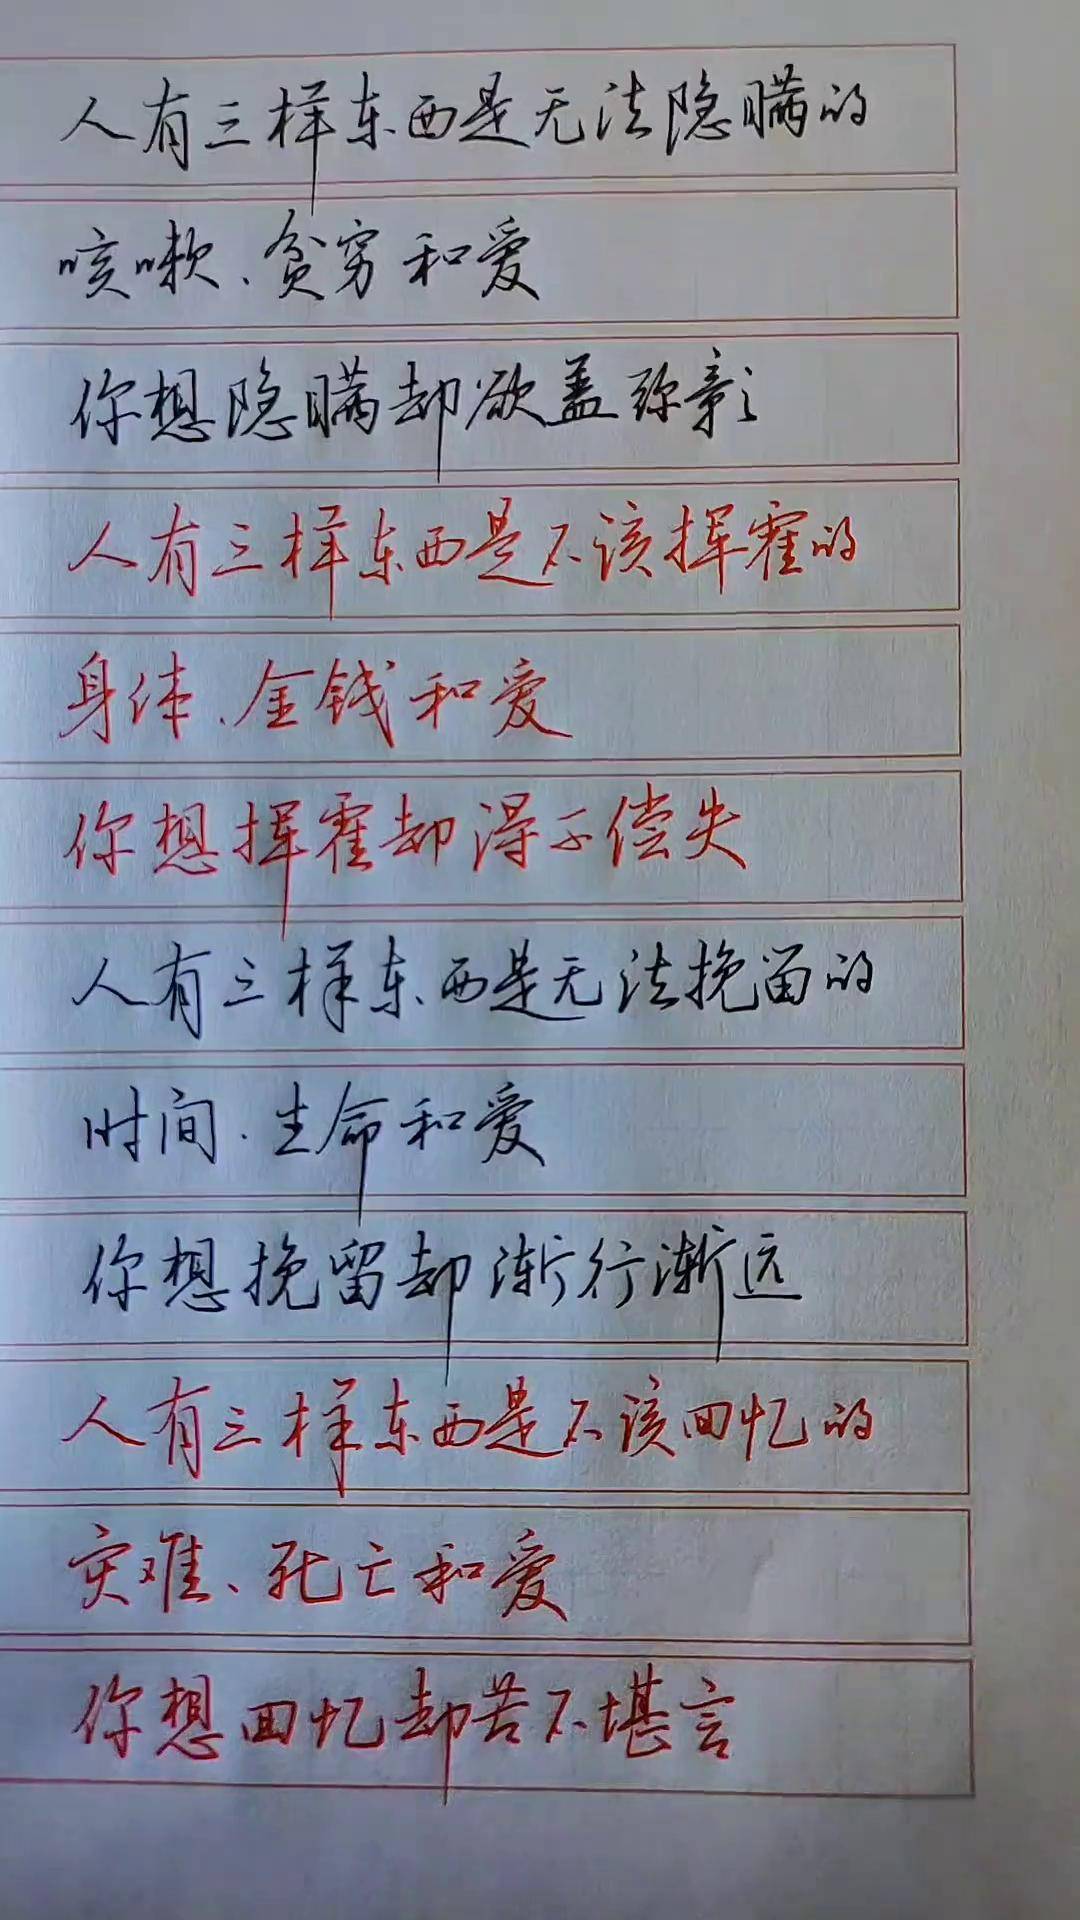 人有三样东西是无法隐瞒的
咳嗽、贫穷和爱
你想隐瞒却欲盖弥彰
人有三样东西是不该挥霍的
身体、金钱和爱
你想挥霍却得不偿失
人有三样东西是无法挽留的
时间、生命和爱
你想挽留却渐行渐远
人有三样东西是不该回忆的
灾难、死亡和爱
你想回忆却苦不堪言